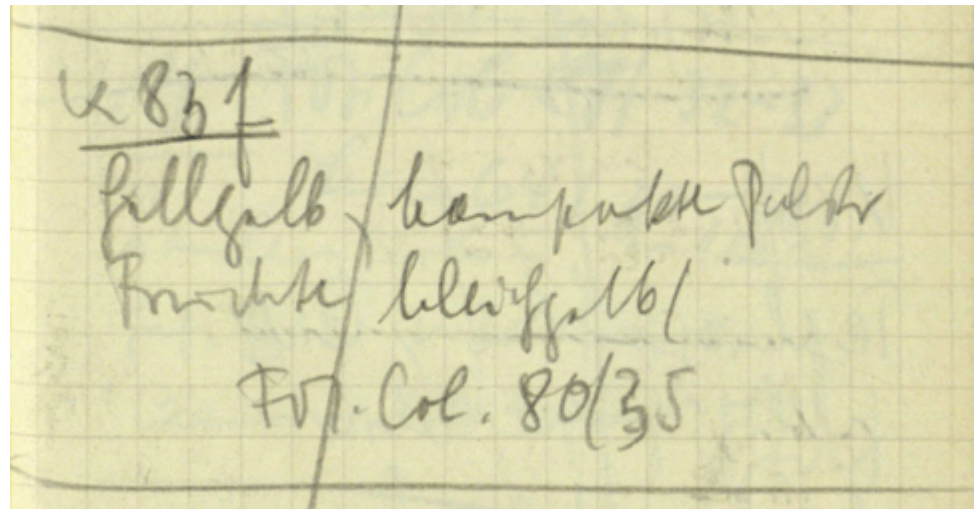 K 831
hellgelb, kompakte Polster
Früchte bleichgelb/
Fot. Col. 80/35